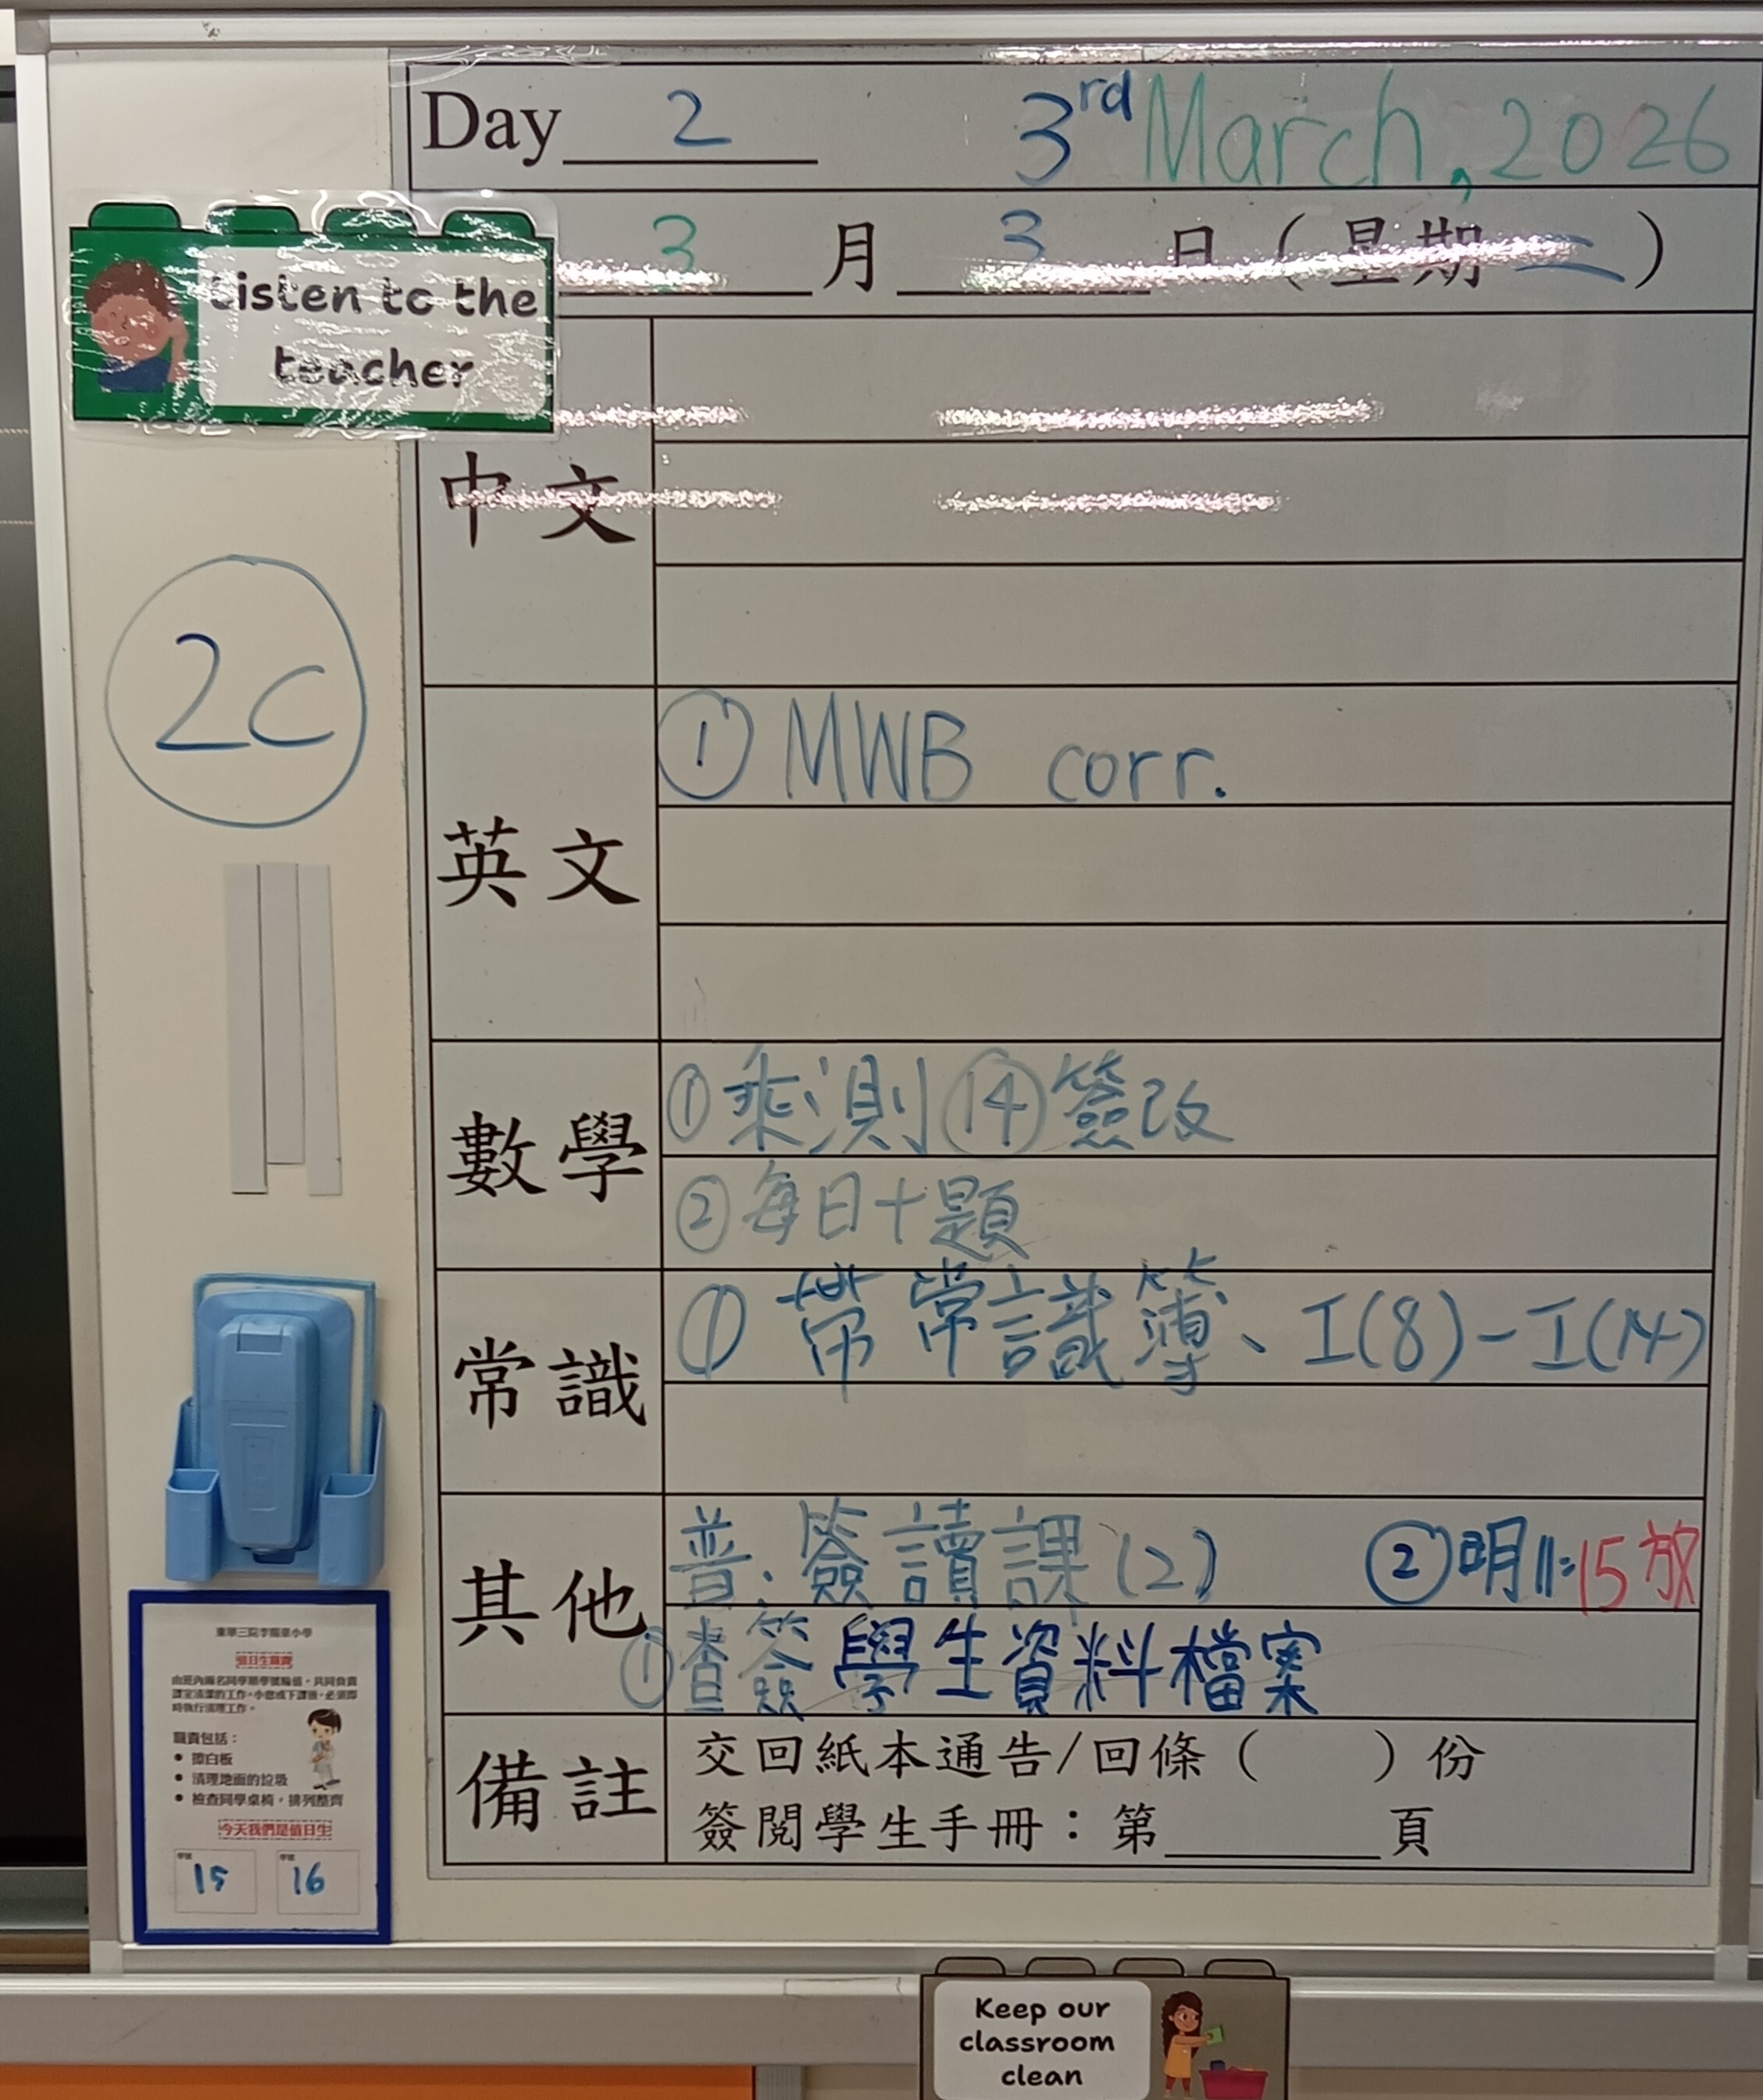 Day 2 3rd March, 2026
3 月 3 日 (星期二)
Listen to the
teacher
中文
2C
英文
① MWB corr.
數學
① 乘測⑭簽改
② 每日十題
常識
① 帶常識簿、I(8)-I(14)
其他
普：簽讀課(2) ②明11:15放
①查簽學生資料檔案
備註
交回紙本通告/回條（ ）份
簽閱學生手冊：第 頁
值日生職責
由班內兩名同學順學號輪值，共同負責
課室清潔的工作。小息或下課後，必須即
時執行清理工作。
職責包括：
● 擦白板
● 清理地面的垃圾
● 檢查同學桌椅，排列整齊
今天我們是值日生
學號 學號
15 16
Keep our
classroom
clean